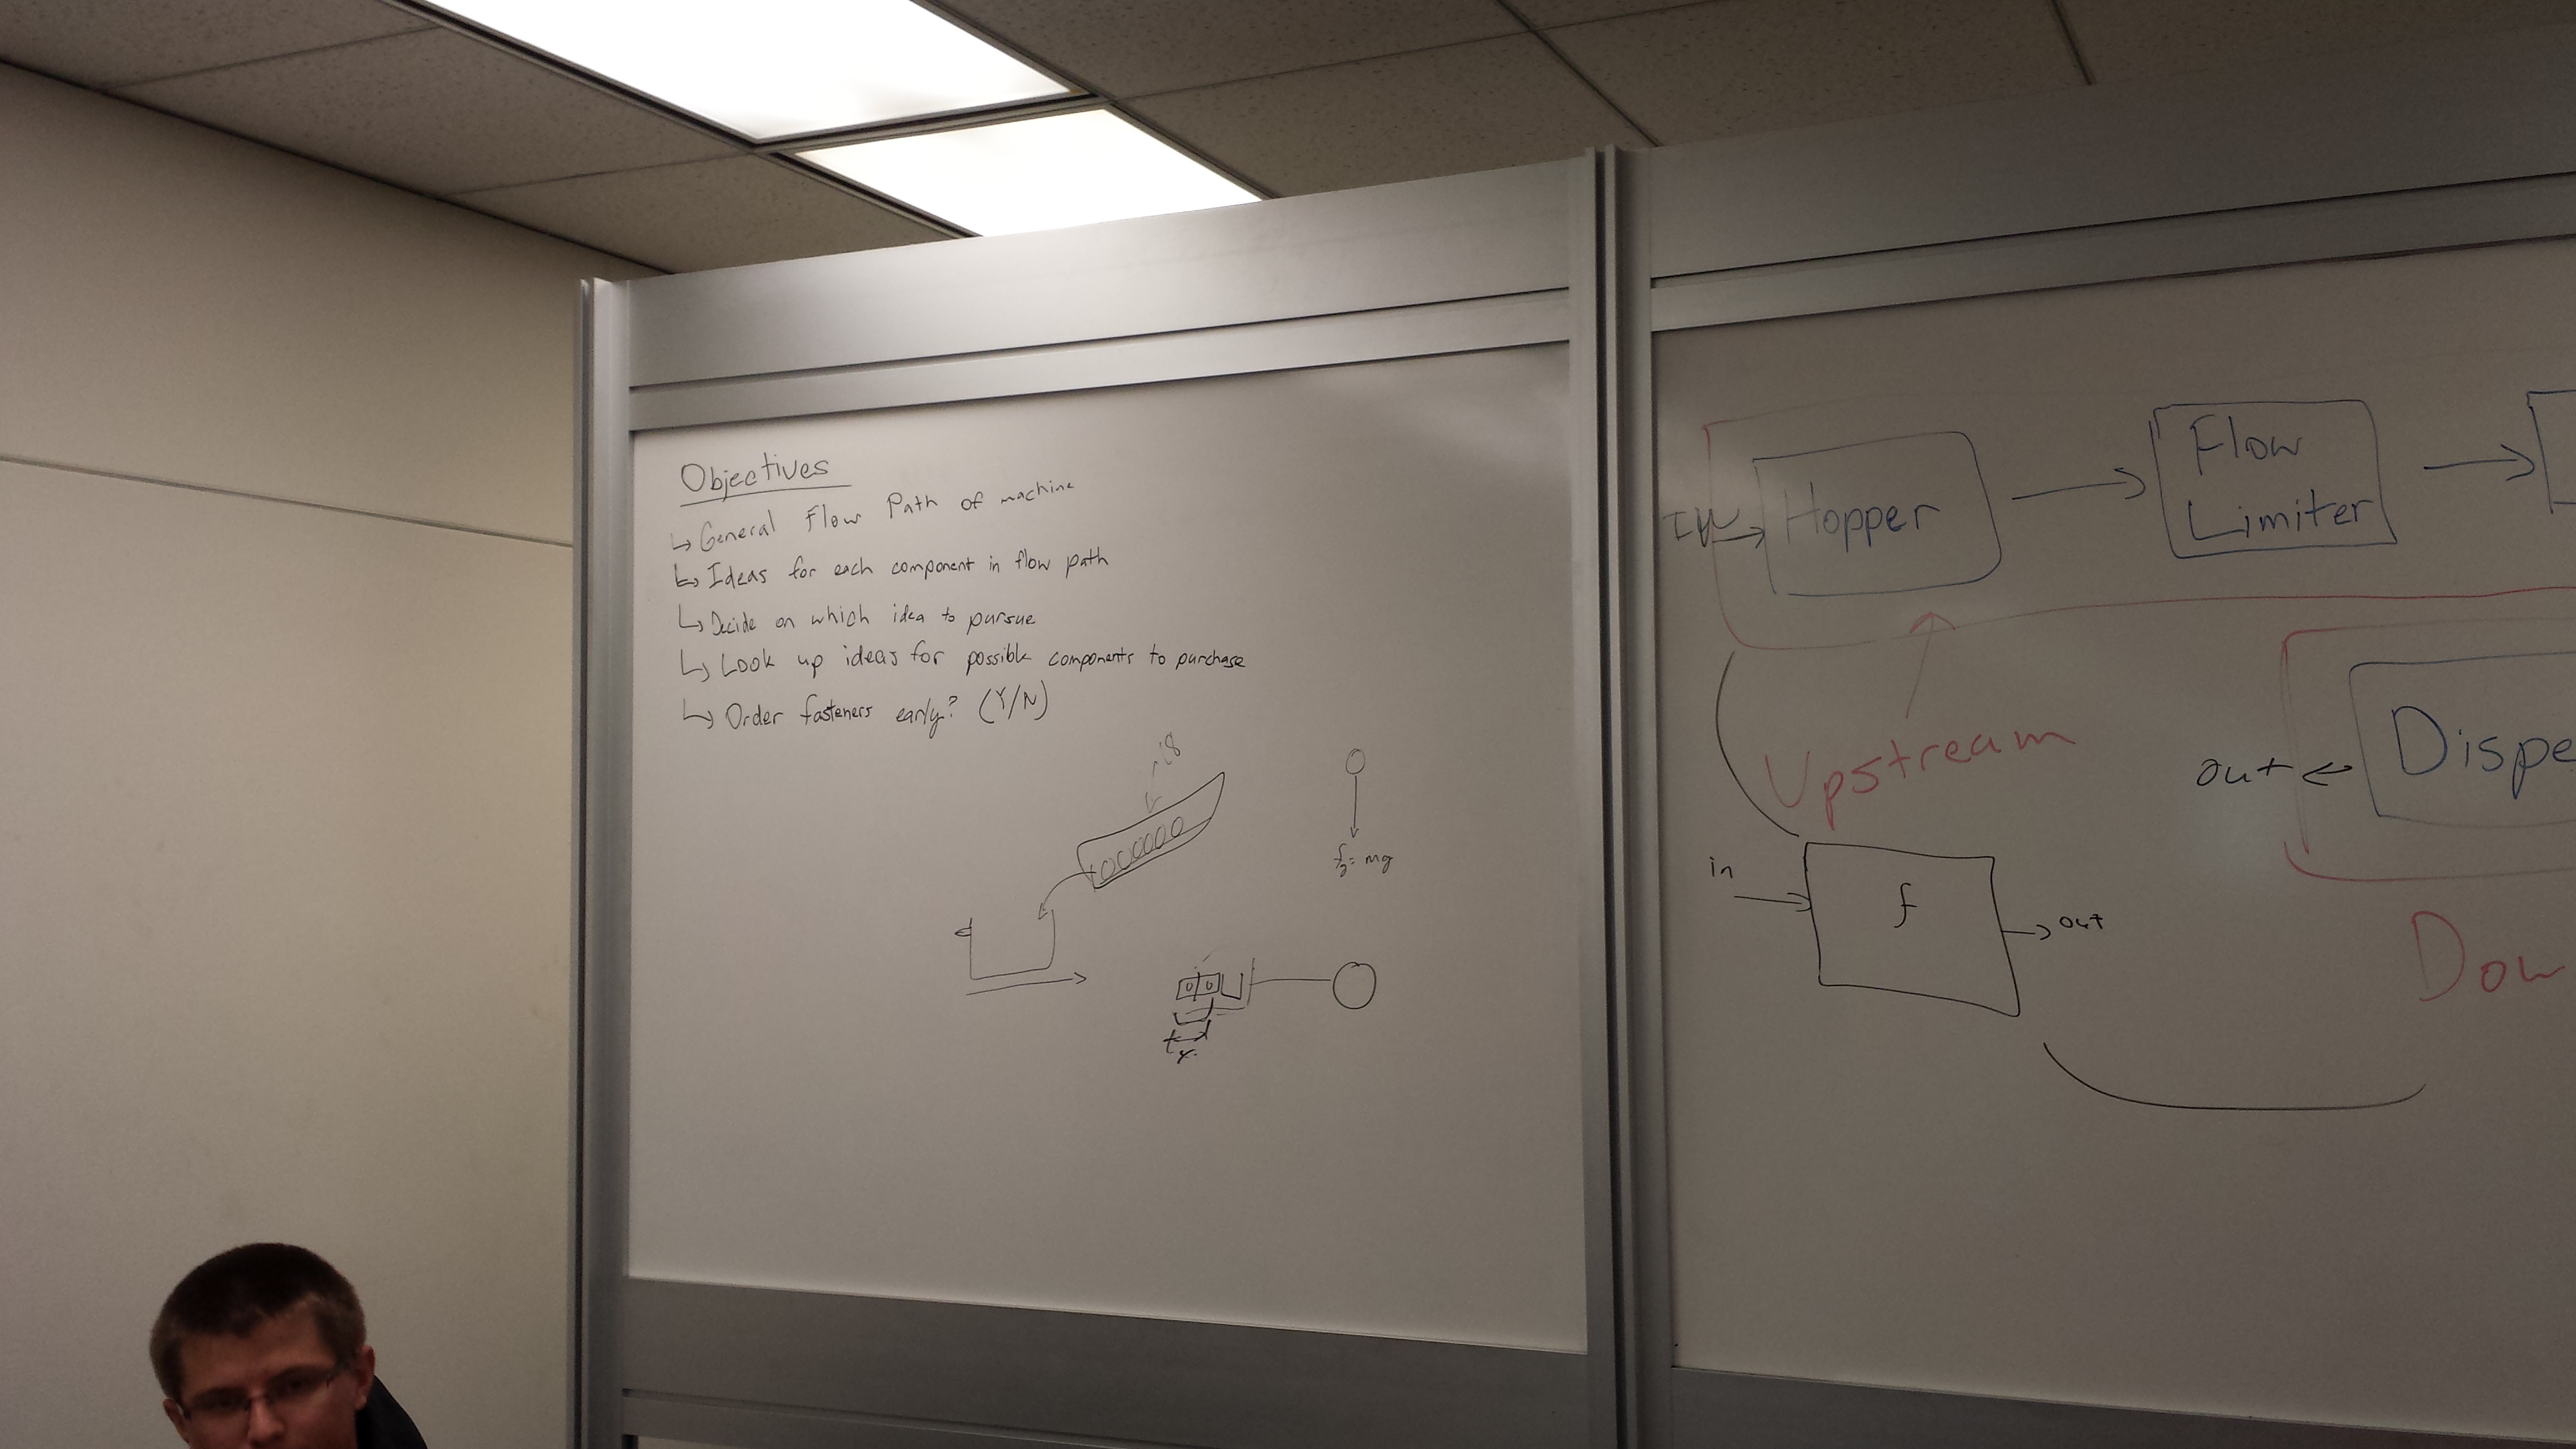 Objectives
↳ General Flow Path of machine
↳ Ideas for each component in flow path
↳ Decide on which idea to pursue
↳ Look up ideas for possible components to purchase
↳ Order fasteners early? (Y/N)
= mg
Hopper
Flow
Limiter
Upstream
out
Dispe
in
f
out
Dow